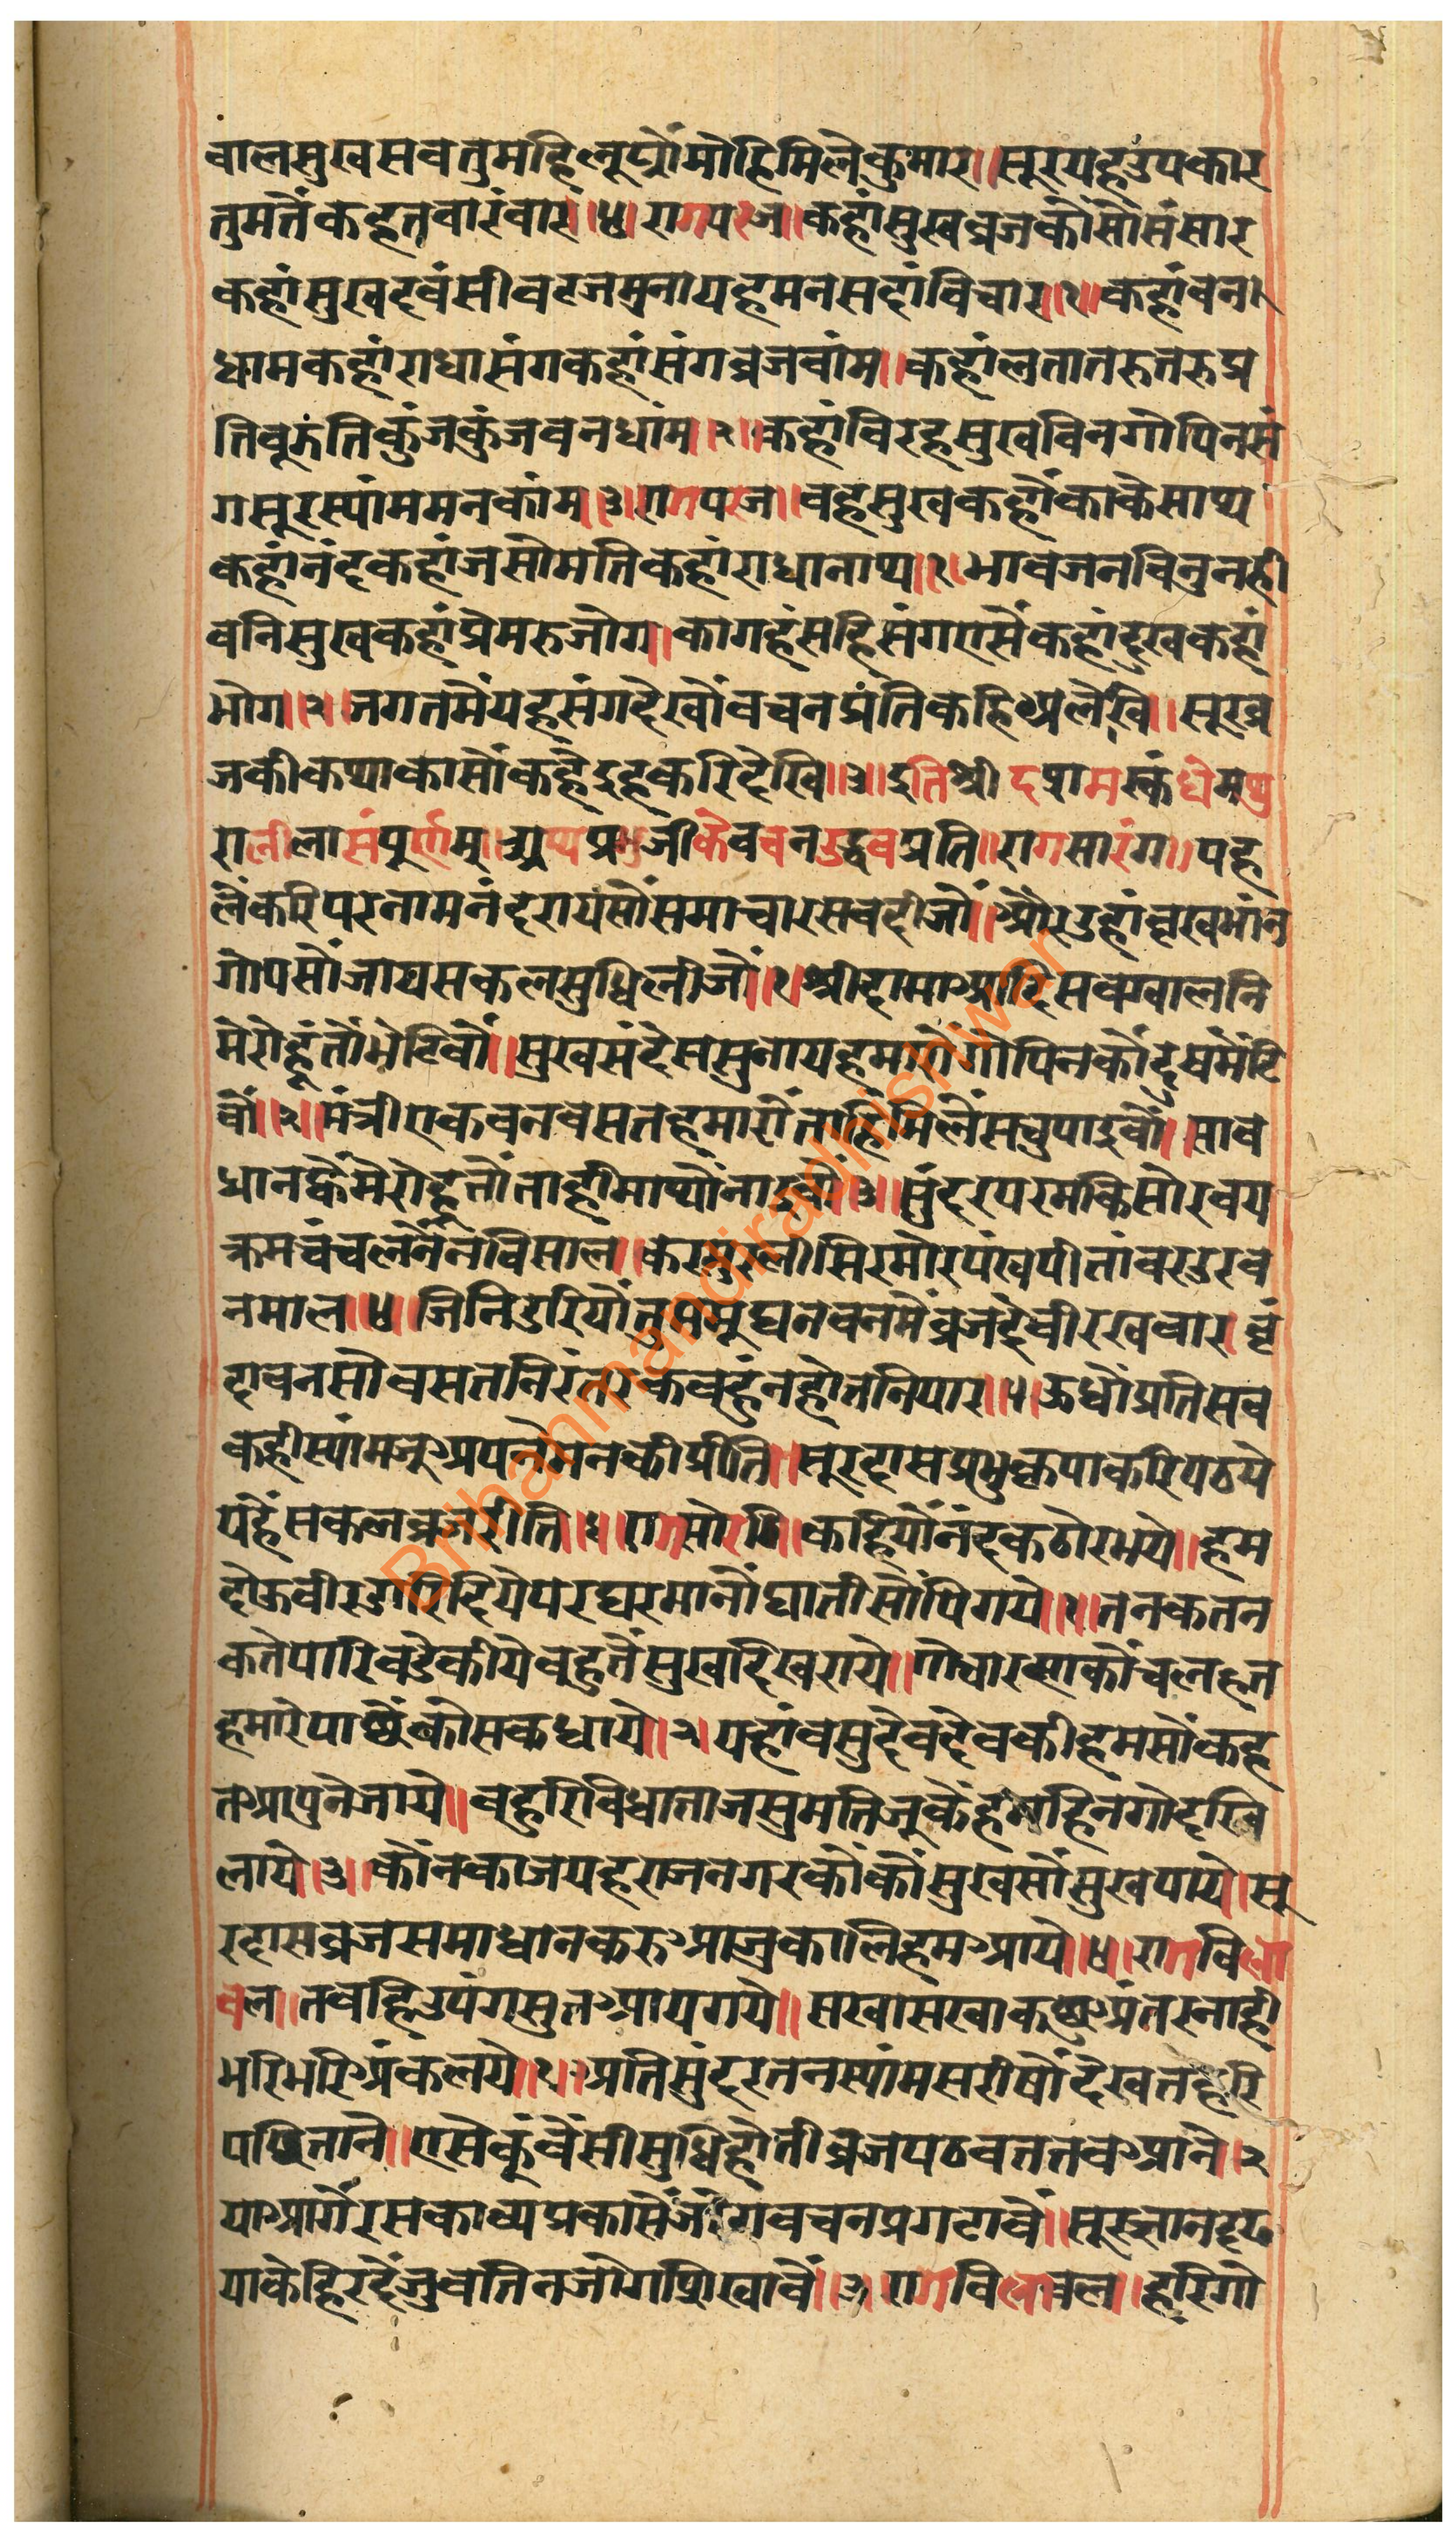 वालसुखसवतुमहिलूघौंमोहिमिलेकुमार॥सूरयहउपकार
तुमतैंकहतवारंवार॥४॥रागपरज॥कहांसुखव्रजकौसौसंसार
कहांसुखदवंसीवटजमुनायहमनसदांविचार॥१॥कहांवन
धामकहांराधासंगकहांसंगव्रजवांम॥कहांलतातरुतरुप्र
तिवूझंतिकुंजकुंजवनधांम॥२॥कहांविरहसुखविनगोपिनसं
गसूरस्यांममनकांम॥३॥रागपरज॥वहसुखकहौंकाकेसाथ
कहांनंदकहांजसोमतिकहांराधानाथ॥१॥भावजनविनुनही
वनिसुखकहांप्रेमरुजोग॥कागहंसहिसंगएसैंकहांदुखकहां
भोग॥२॥जगतमैंयहसंगदेखौंवचनप्रंतिकहिअलेखि॥सूरव्र
जकीकथाकासौंकहैइहकरिदेखि॥३॥इतिश्रीदशमस्कंधेमथु
रालीलासंपूर्णम्॥अथप्रभुजीकेवचनउद्धवप्रति॥रागसारंग॥पह
लैंकरिपरनामनंदरायसौंसमाचारसवदीजौं॥औरउहांवृखभांन
गोपसौंजायसकलसुधिलीजौं॥१॥श्रीदामाआदिसवग्वालनि
मेरोहूंतौंभेटिवौं॥सुखसंदेससुनायहमारौगोपिनकौंदुखमेंटि
वौं॥२॥मंत्रीएकवनवसतहमारौंताहिमिलैंसचुपाइवौं॥साव
धानव्हैमेरोहूतौंताहीमाथौंनाइवौं॥३॥सुंदरपरमकिसोरवय
क्रमचंचलनैंनविसाल॥करमुरलीसिरमोरपंखपीतांवरउरव
नमाल॥४॥जिनिडरियौंतुमसूघनवनमैंव्रजदेवीरखवार॥वृं
दावनसोवसतनिरंतरकवहुंनहोतनियार॥५॥ऊधौंप्रतिसव
कहीस्यांमजुअपनेमनकीप्रीति॥सूरदासप्रभुकृपाकरिपठये
यहैंसकलव्रजरीति॥६॥रागसोरठि॥कहियौंनंदकठोरभये॥हम
दोऊवीरडारिदियेपरघरमानौंघातीसौंपिगये॥१॥तनकतन
कतेपारिवडेकीयेवहुतैंसुखदिखराये॥गोचारनकौंचलतन
हमारेपाछेंकोसकधाये॥२॥यहांवसुदेवदेवकीहमसौंकह
तआपुनेजाये॥वहुरिविधाताजसुमतिजूकेहंमहिनगोदखि
लाये॥३॥कौंनकाजयहराजनगरकौंकौंसुखसौंसुखपाये॥सू
रदासव्रजसमाधानकरुआजुकालिहमआये॥४॥रागविला
वल॥तवहिउपंगसुतआयगये॥सखासखाकछुअंतरनाही
भरिभरिअंकलये॥१॥अतिसुंदरतनस्यांमसरीषौंदेखतहरि
पछिताने॥एसेकुंवैंसीसुधिहोतीव्रजपठवततवआने॥२॥
याआगैंरसकाव्यप्रकासैंजोगवचनप्रगटावैं॥सूरज्ञानदृढ
याकेहिरदैंजुवतिनजोगसिखावैं॥३॥रागविलावल॥हरिगो
Brihanmandiradhishwar